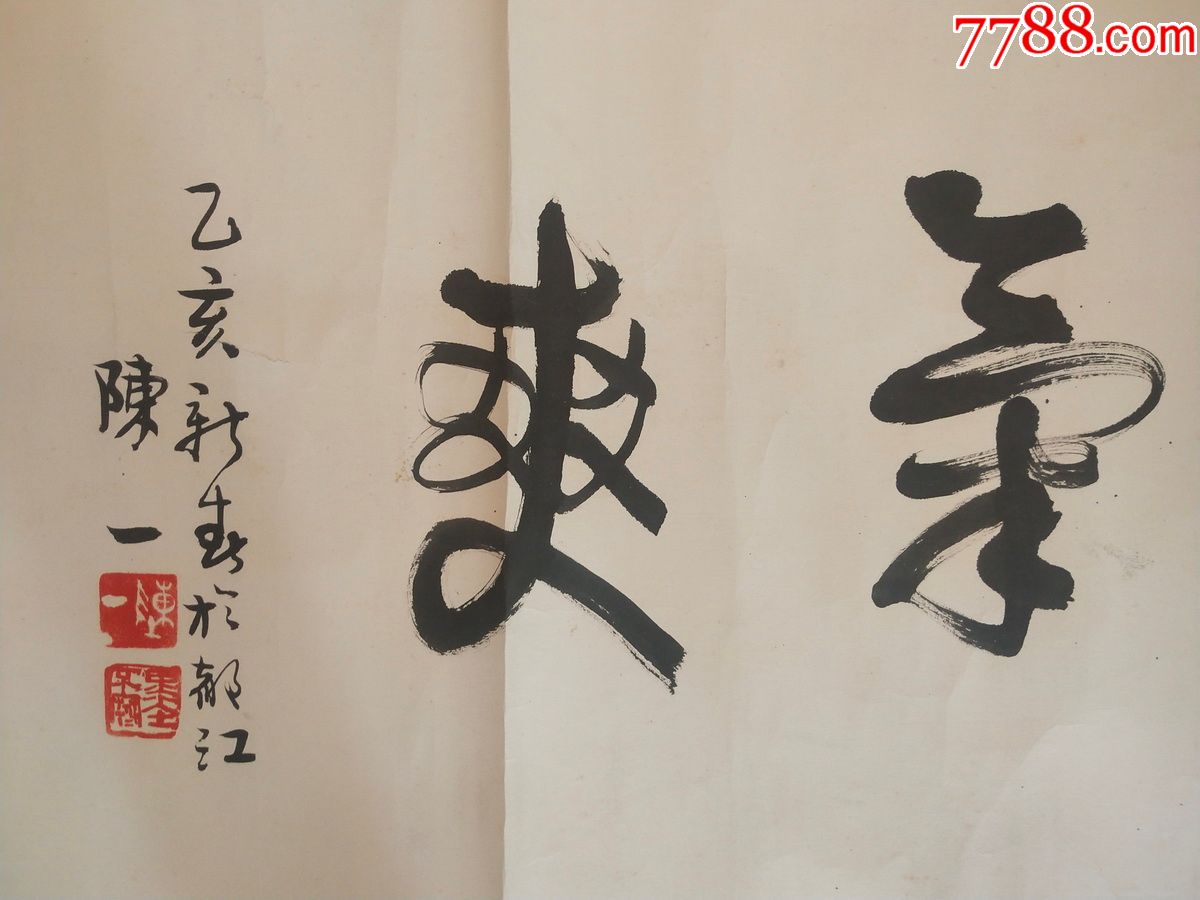 7788.com
氣
爽
乙亥新春於都江
陳一
陳一